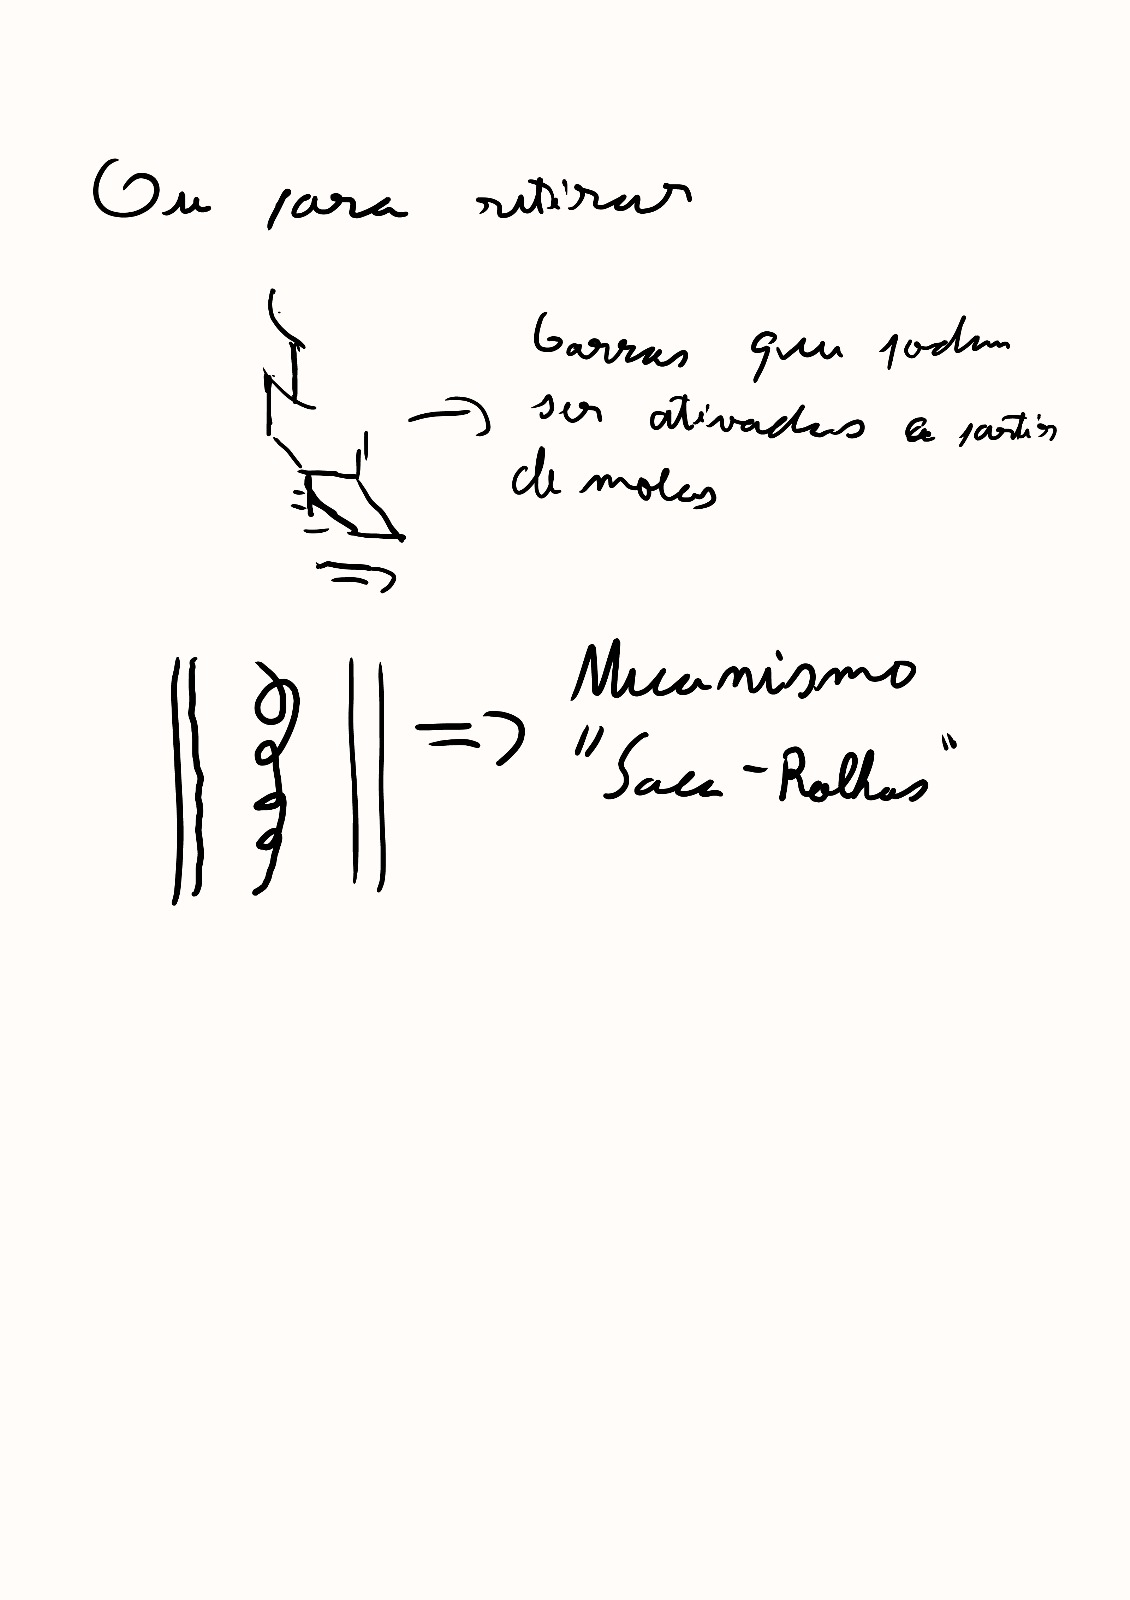 Ou para retirar
Garras que podem
ser ativadas a partir
de molas
Mecanismo
"Saca-Rolhas"